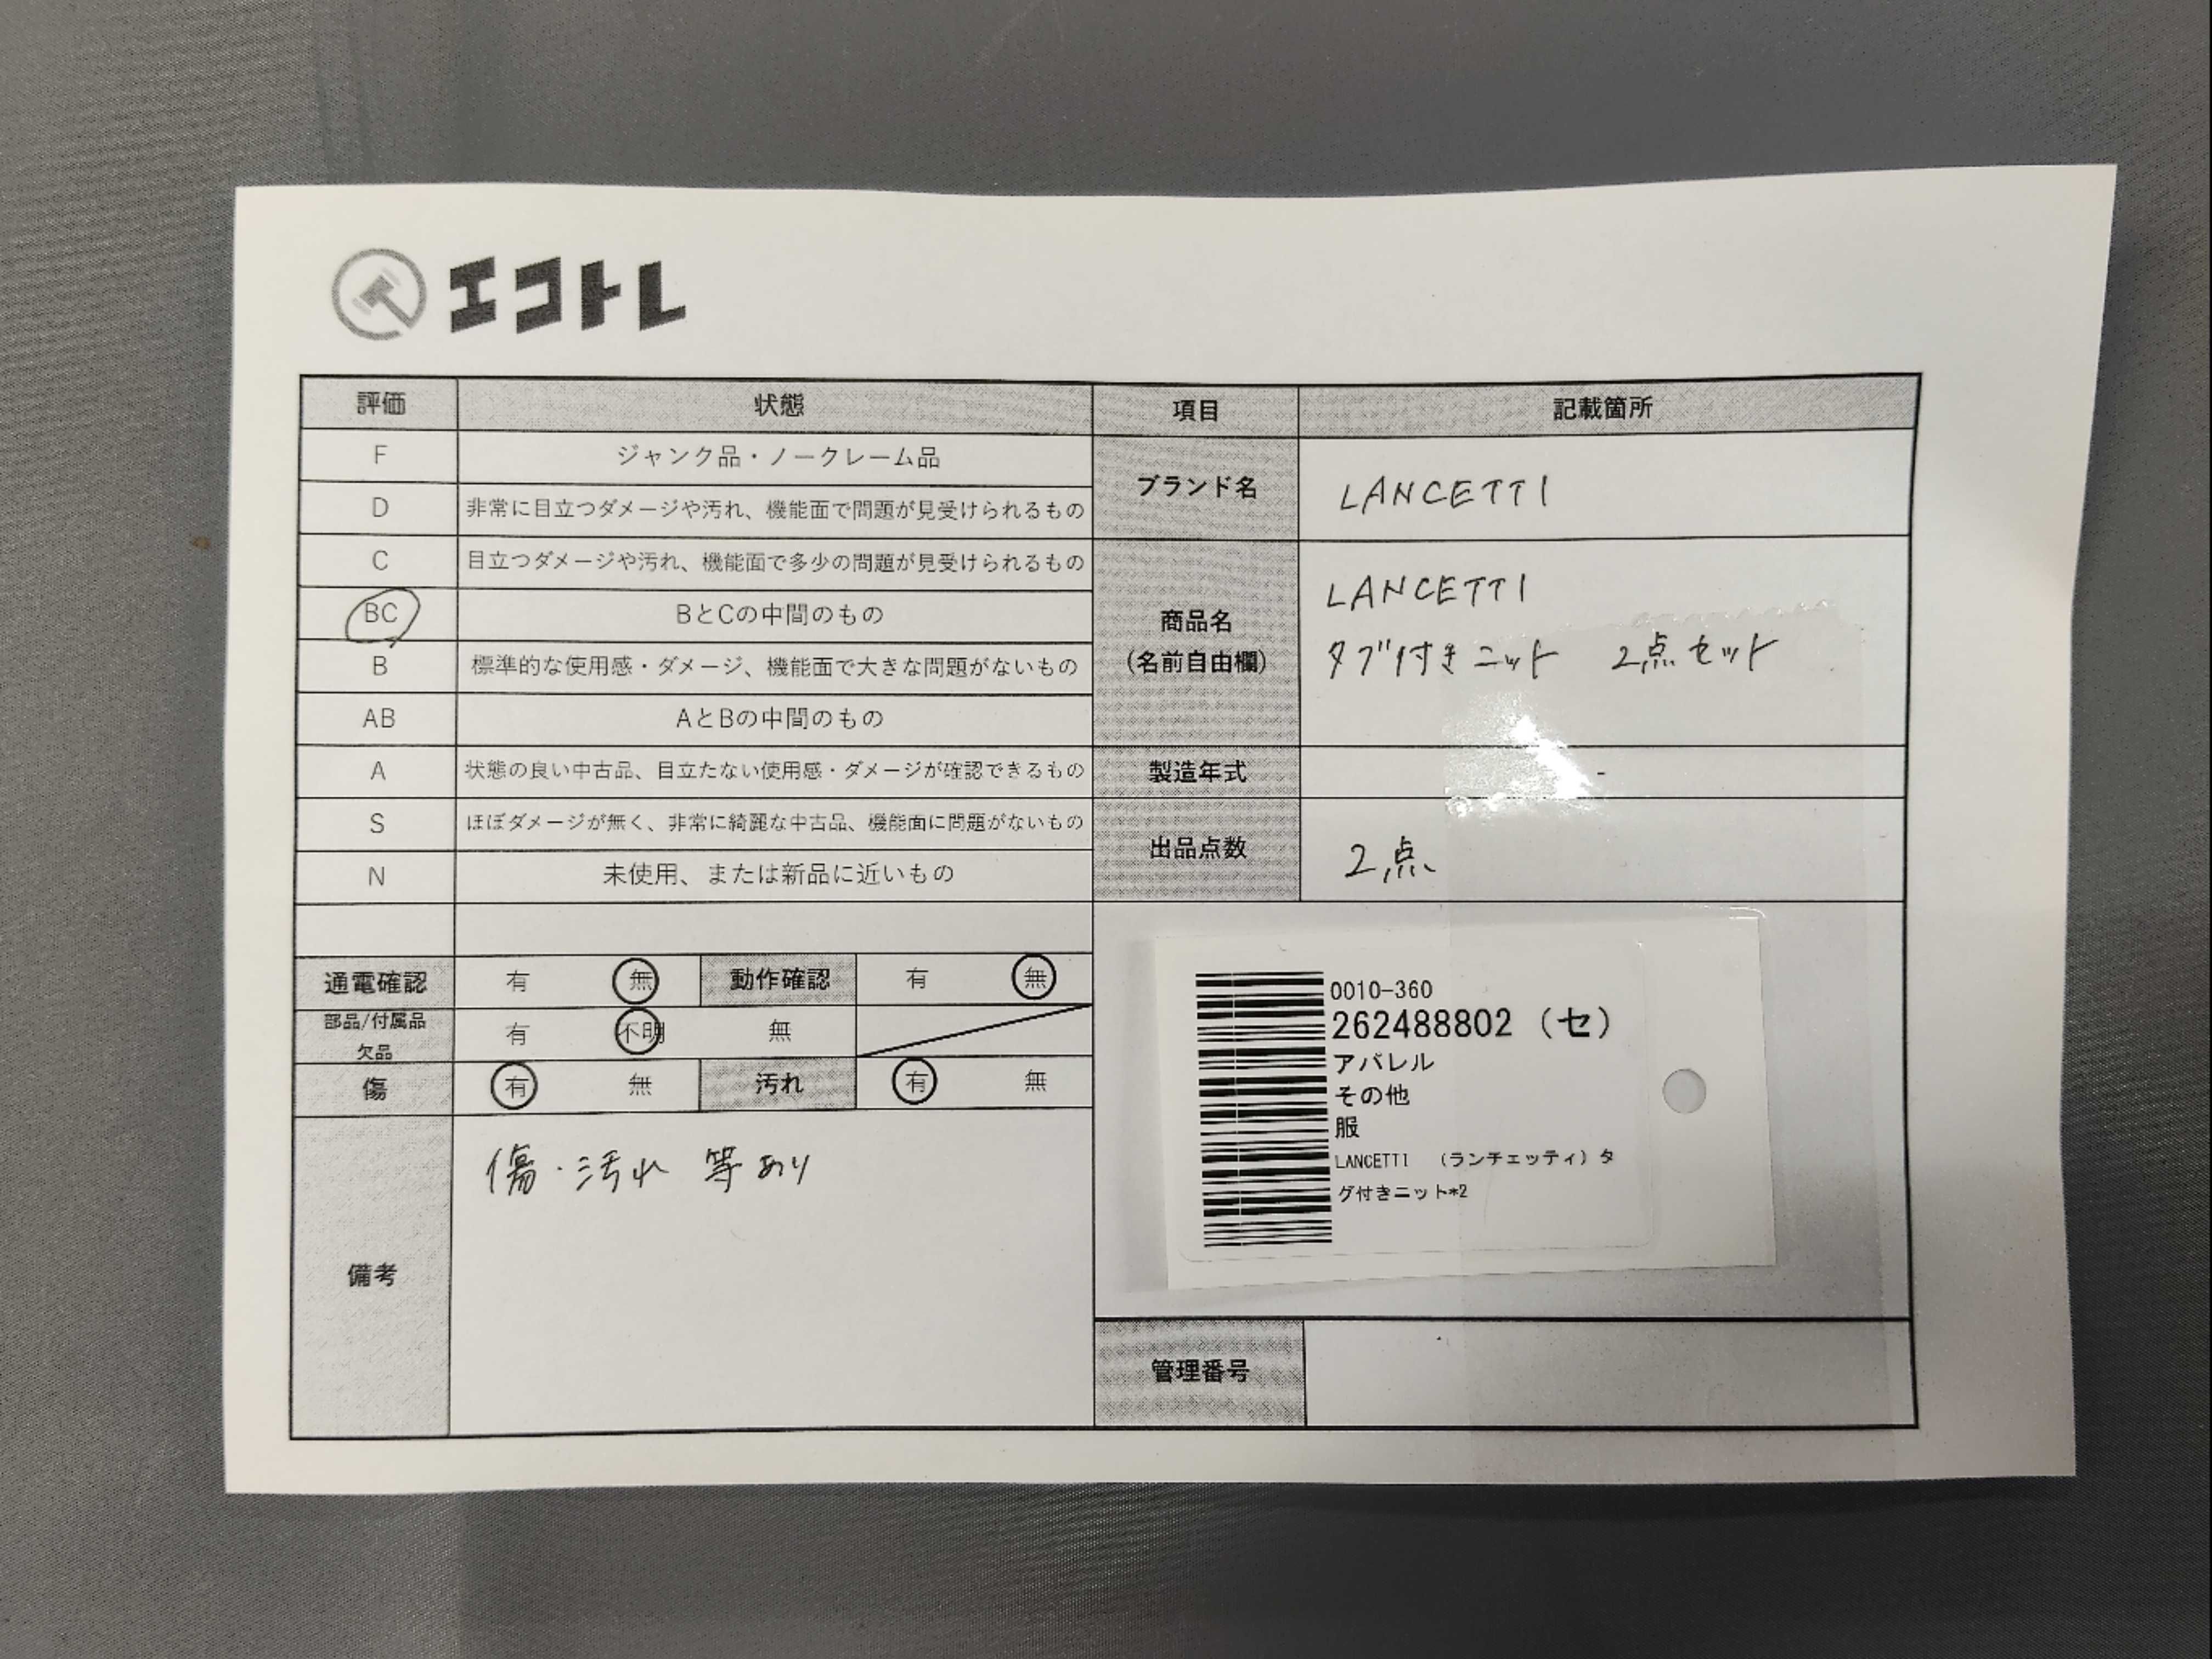 エコトレ
評価 状態 項目 記載箇所
F ジャンク品・ノークレーム品
D 非常に目立つダメージや汚れ、機能面で問題が見受けられるもの
ブランド名 LANCETTI
C 目立つダメージや汚れ、機能面で多少の問題が見受けられるもの
BC BとCの中間のもの
B 標準的な使用感・ダメージ、機能面で大きな問題がないもの
AB AとBの中間のもの
商品名
(名前自由欄)
LANCETTI
タグ付きニット 2点セット
A 状態の良い中古品、目立たない使用感・ダメージが確認できるもの
製造年式 -
S ほぼダメージが無く、非常に綺麗な中古品、機能面に問題がないもの
N 未使用、または新品に近いもの
出品点数 2点
通電確認 有 無 動作確認 有 無
部品/付属品
欠品
有 不明 無
傷 有 無 汚れ 有 無
備考
傷・汚れ 等あり
0010-360
262488802（セ）
アパレル
その他
服
LANCETTI （ランチェッティ）タ
グ付きニット*2
管理番号